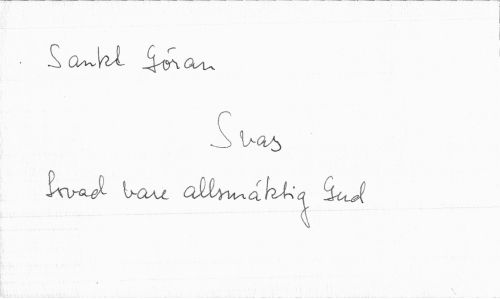 Sankt Göran
Svas
Lovad vare allsmäktig Gud